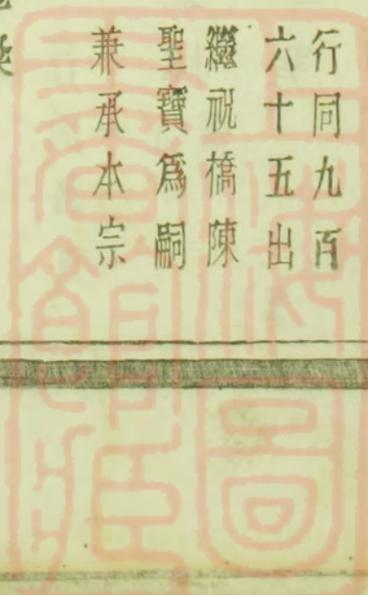 行同九百
六十五出
繼祝橋陳
聖寶爲嗣
兼承本宗